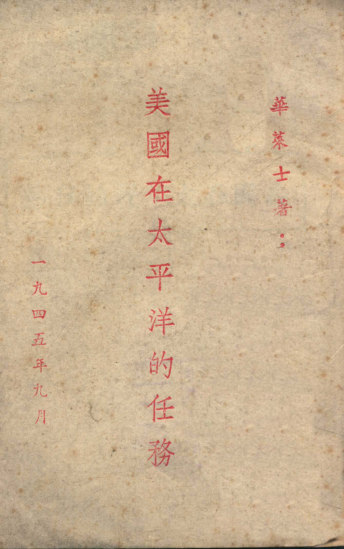 華萊士著：
美國在太平洋的任務
一九四五年九月